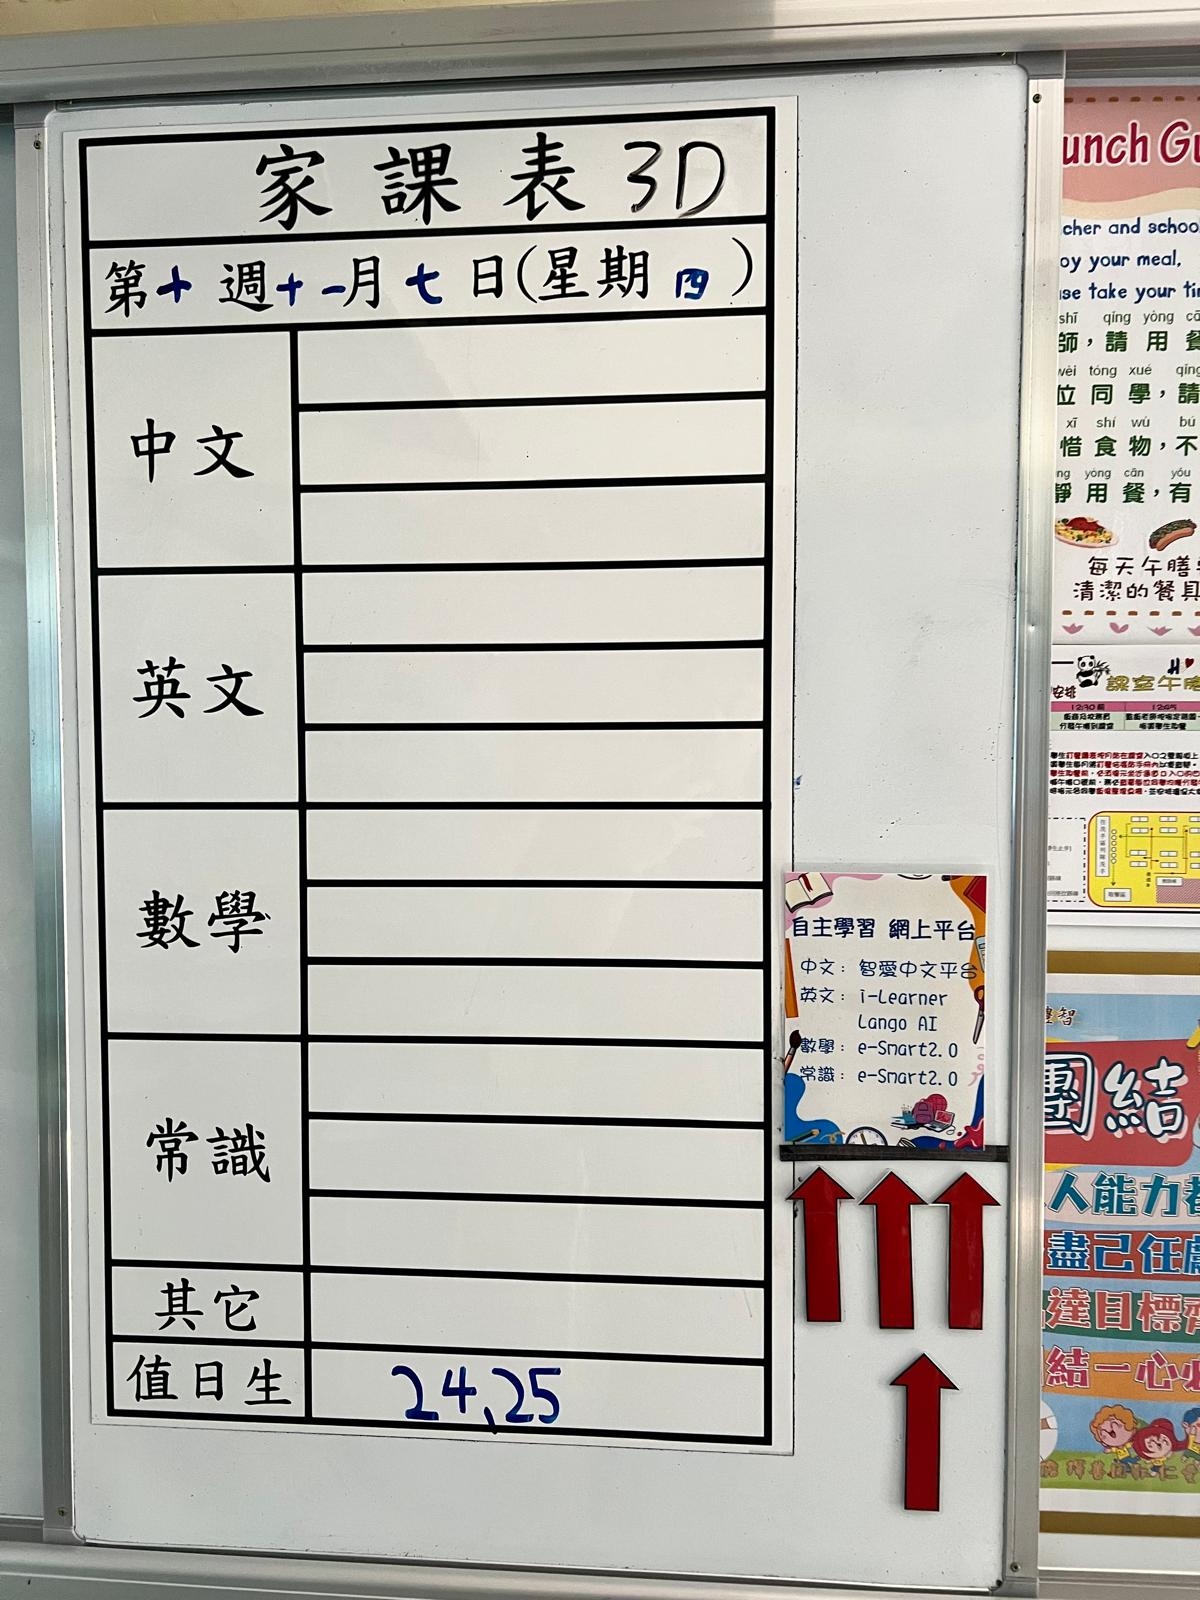 家課表 3D
第十週十一月七日(星期四)
中文
英文
數學
常識
其它
值日生 24,25
自主學習 網上平台
中文：智愛中文平台
英文：i-Learner
Lango AI
數學：e-Smart2.0
常識：e-Smart2.0
unch Gu
cher and schoo
oy your meal,
se take your ti
shī qíng yòng cā
師，請用餐
wèi tóng xué qǐng
位同學，請
xī shí wù bú
惜食物，不
ng yòng cān yǒu
靜用餐，有
每天午膳
清潔的餐具
安排
課室午膳
12:30前 12:45
團結
人能力都
盡己任
達目標齊
結一心必